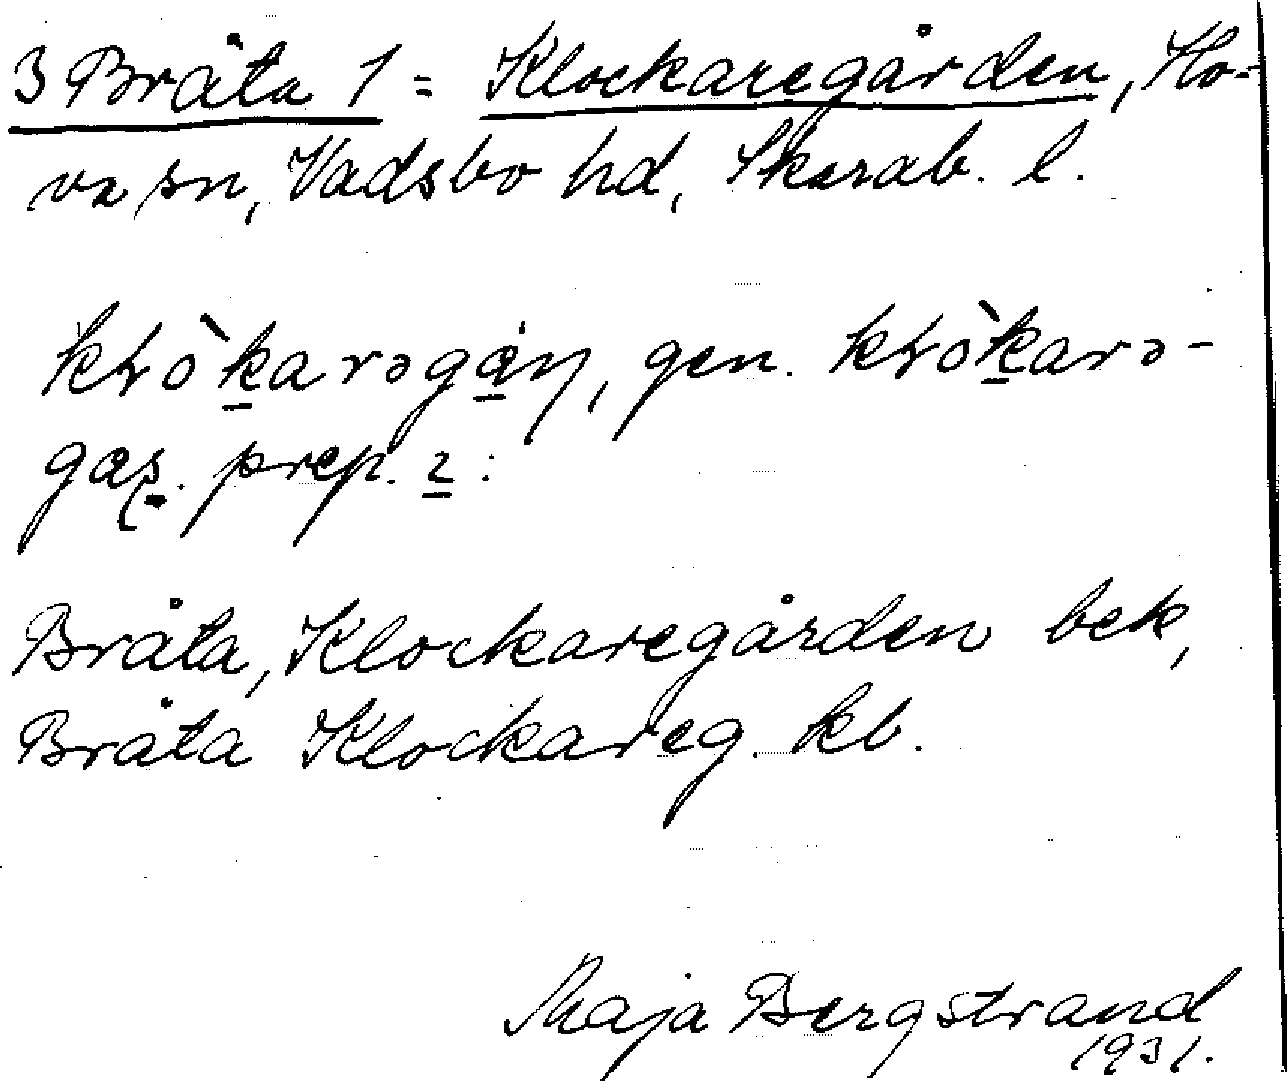 3 Bråta 1 = Klockaregården, Ho-
va sn, Vadsbo hd, Skarab. l.
gen.
prep.
Bråta, Klockaregården bek,
Bråta Klockareg. kb.
Maja Bergstrand
1931.